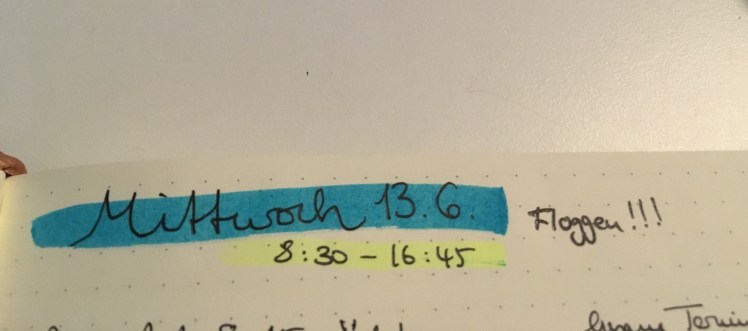 Mittwoch 13.6. Floggen!!!
8:30 – 16:45